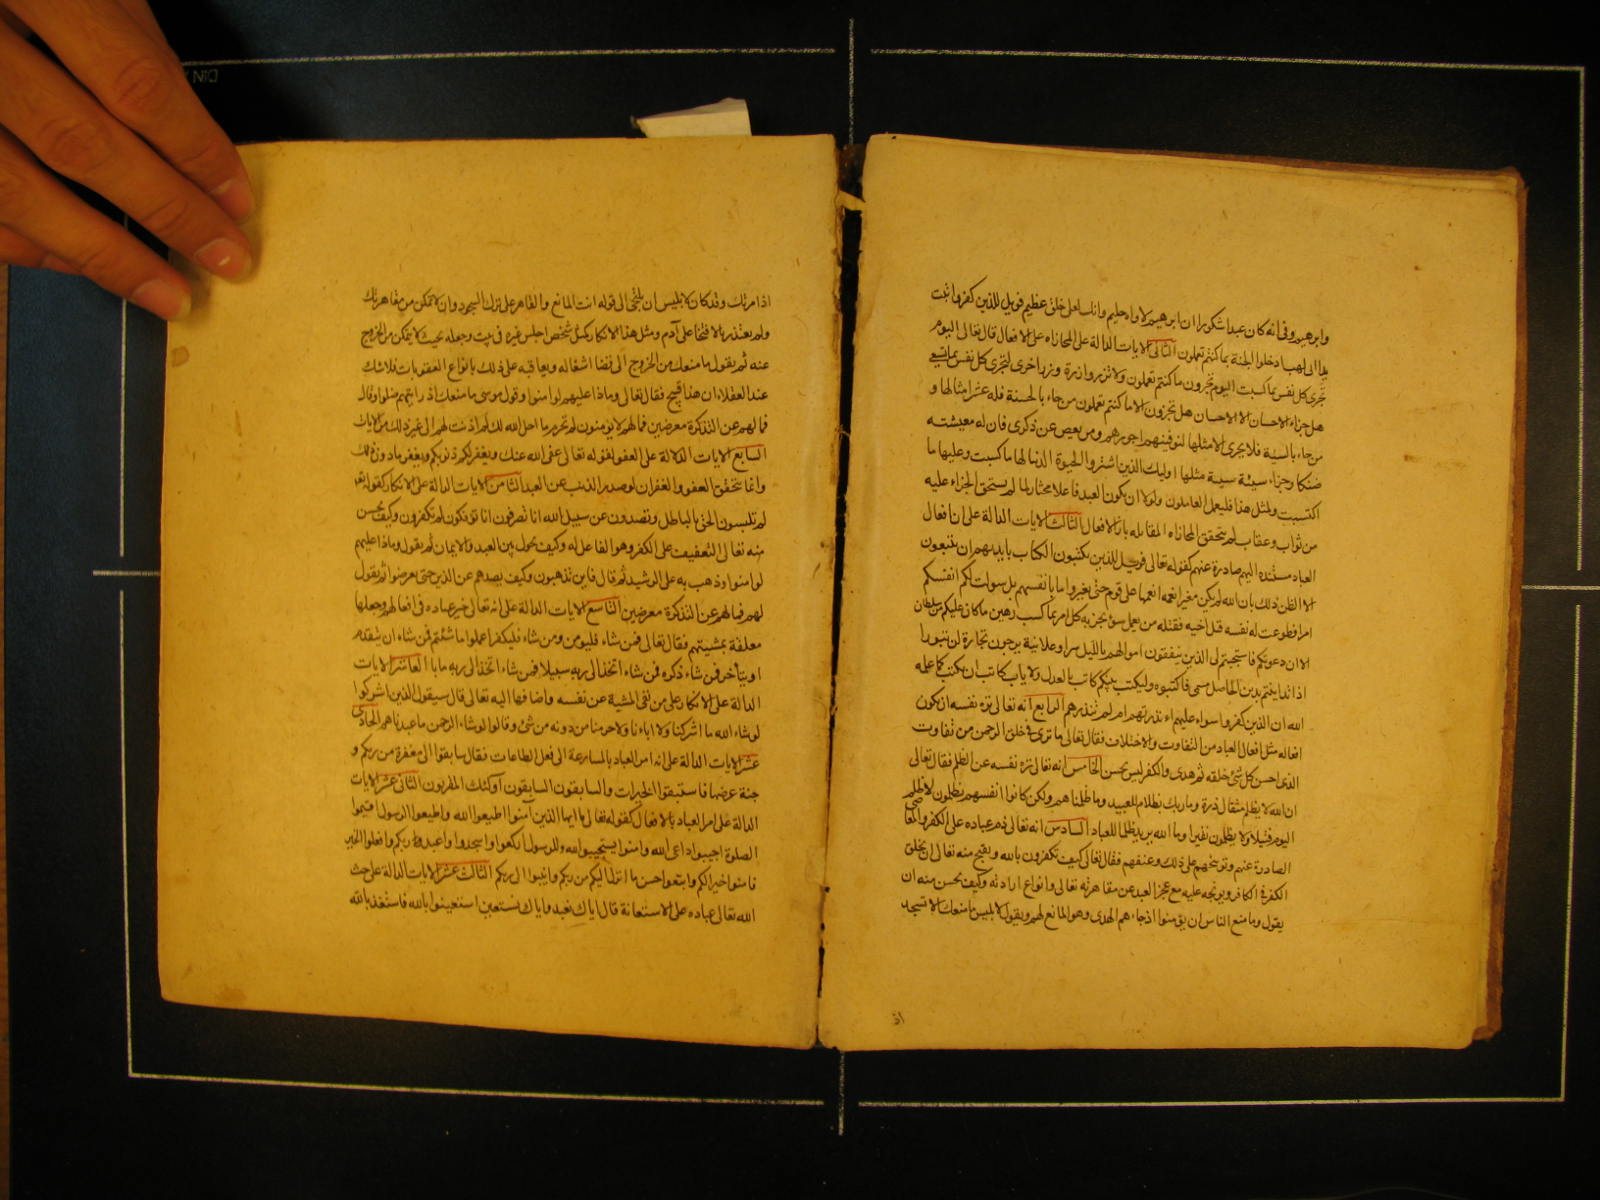 وابرهيم وفى انه كان عبدا شكورا ان ابرهيم لاواه حليم وانك لعلى خلق عظيم فويل للذين كفروا تبت
يدا ابى لهب ادخلوا الجنة بما كنتم تعملون الثانى الايات الدالة على المجازاه على الافعال قال تعالى اليوم
تجزى كل نفس بما كسبت اليوم تجزون ما كنتم تعملون ولا تزر وازرة وزر اخرى لتجزى كل نفس بما تسعى
هل جزاء الاحسان الا الاحسان هل تجزون الا ما كنتم تعملون من جاء بالحسنة فله عشر امثالها و
من جاء بالسية فلا يجزى الا مثلها ليوفينهم اجورهم ومن يعص عن ذكرى فان له معيشته
ضنكا وجزاء سيئة سيية مثلها اوليك الذين اشتروا الحيوة الدنيا لها ما كسبت وعليها ما
اكتسبت ولمثل هذا فليعمل العاملون ولولا ان يكون العبد فاعلا مختارا لما لم يستحق الجزاء عليه
من ثواب وعقاب لم يتحقق المجازاه المقابله بازاء الافعال الثالث الايات الدالة على ان افعال
العباد مستنده اليهم صادرة عنهم كقوله تعالى فويل للذين يكتبون الكتاب بايديهم ان يتبعون
الا الظن ذلك بان الله لم يكن مغيرا نعمه انعمها على قوم حتى يغيروا ما بانفسهم بل سولت لكم انفسكم
امرا فطوعت له نفسه قتل اخيه فقتله من يعمل سوء يجز به كل امرء بما كسب رهين ما كان لى عليكم من سلطان
الا ان دعوتكم فاستجبتم لى الذين ينفقون اموالهم بالليل سرا وعلانية يرجون تجارة لن تبورا
اذا تداينتم بدين الى اجل مسمى فاكتبوه وليكتب بينكم كاتب بالعدل ولا ياب كاتب ان يكتب كما علمه
الله ان الذين كفروا سواء عليهم اءنذرتهم ام لم تنذرهم الرابع انه تعالى نزه نفسه ان يكون
افعاله مثل افعال العباد من التفاوت والاختلاف فقال تعالى ما ترى فى خلق الرحمن من تفاوت
الذى احسن كل شئ خلقه ثم هدى والكفر ليس بحسن الخامس انه تعالى نزه نفسه عن الظلم فقال تعالى
ان الله لا يظلم مثقال ذرة وما ربك بظلام للعبيد وما ظلمناهم ولكن كانوا انفسهم يظلمون لا ظلم
اليوم فتيلا ولا يظلمون نقيرا وما الله يريد ظلما للعباد السادس انه تعالى ذم عباده على الكفر والمعاصى
الصادرة عنهم وتوبيخهم على ذلك وعنفهم فقال تعالى كيف تكفرون بالله ويقبح منه تعالى ان يخلق
الكفر فى الكافر ويوبخه عليه مع عجز العبد عن مقاهرته تعالى وانواع ارادته وكيف يحسن منه ان
يقول وما منع الناس ان يؤمنوا اذ جاءهم الهدى وهو المانع لهم ويقول لابليس ما منعك الا تسجد
اذ
اذ امرتك وقد كان لابليس ان يلتجى الى قوله انت المانع والقاهر على ترك السجود وان لا تمكن من مقاهرتك
ولم يعتذر بالافتخا على آدم ومثل هذا الانكار كمثل شخص اجلس غيره فى بيت وجعله بحيث لا يتمكن من الخروج
عنه ثم يقول ما منعك من الخروج الى قضا اشغاله ويعاقبه على ذلك بانواع العقوبات فلا شك
عند العقلاء ان هذا قبيح فقال تعالى وماذا عليهم لو امنوا وقول موسى ما منعك اذ رايتهم ضلوا وقال
فما لهم عن التذكرة معرضين فما لهم لا يؤمنون لم تحرم ما احل الله لك لم اذنت لهم الى غير ذلك من الايات
السابع الايات الدالة على العفو لقوله تعالى عفى الله عنك ويغفر لكم ذنوبكم ويغفر ما دون ذلك
وانما يتحقق العفو والغفران لو صدر الذنب عن العبد الثامن الايات الدالة على الانكار كقوله تعا
لم تلبسون الحق بالباطل وتصدون عن سبيل الله انا تصرفون انا تؤفكون لم تكفرون وكيف يحسن
منه تعالى التعفيف على الكفر وهو الفاعل له وكيف يحول بين العبد والايمان ثم يقول وماذا عليهم
لو امنوا وذهب به على الرشيد ثم قال فاين تذهبون وكيف يصدهم عن الدين حتى يعرضوا ثم يقول
لهم فما لهم عن التذكرة معرضين التاسع الايات الدالة على انه تعالى خير عباده فى افعالهم وجعلها
معلقة بمشيتهم فقال تعالى فمن شاء فليومن ومن شاء فليكفر اعملوا ما شئتم فمن شاء ان يتقدم
او يتاخر فمن شاء ذكره فمن شاء اتخذ الى ربه سبيلا فمن شاء اتخذ الى ربه مابا العاشر الايات
الدالة على الانكار على من نفى المشية عن نفسه واضافها اليه تعالى قال سيقول الذين اشركوا
لو شاء الله ما اشركنا ولا اباءنا ولا حرمنا من دونه من شئ وقالوا لو شاء الرحمن ما عبدناهم الحادى
عشر الايات الدالة على انه امر العباد بالمسارعة الى فعل الطاعات فقال سابقوا الى مغفرة من ربكم و
جنة عرضها فاستبقوا الخيرات والسابقون السابقون اولئك المقربون الثانى عشر الايات
الدالة على امر العباد بالافعال كقوله تعالى يا ايها الذين آمنوا اطيعوا الله واطيعوا الرسول اقيموا
الصلوة اجيبوا داعى الله وامنوا يستجيبوا لله وللرسول اركعوا واسجدوا واعبدوا ربكم وافعلوا الخير
فامنوا خيرا لكم واتبعوا حسن ما انزل اليكم من ربكم وانيبوا الى ربكم الثالث عشر الايات الدالة على حث
الله تعالى عباده على الاستعانة قال اياك نعبد واياك نستعين استعينوا بالله فاستعذ بالله